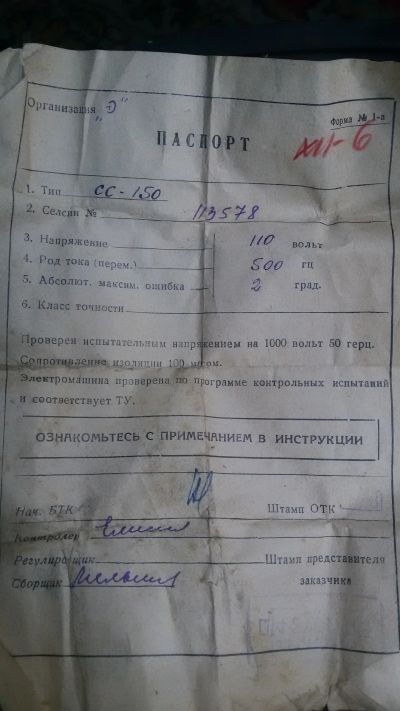 Организация "Э"
Форма № 1-а
ПАСПОРТ
XII-6
1. Тип СС-150
2. Селсин № 113578
3. Напряжение 110 вольт
4. Род тока (перем.) 500 гц
5. Абсолют. максим. ошибка 2 град.
6. Класс точности
Проверен испытательным напряжением на 1000 вольт 50 герц.
Сопротивление изоляции 100 мгом.
Электромашина проверена по программе контрольных испытаний
и соответствует ТУ.
ОЗНАКОМЬТЕСЬ С ПРИМЕЧАНИЕМ В ИНСТРУКЦИИ
Нач. БТК Штамп ОТК
Контролер
Регулировщик Штамп представителя
Сборщик заказчика